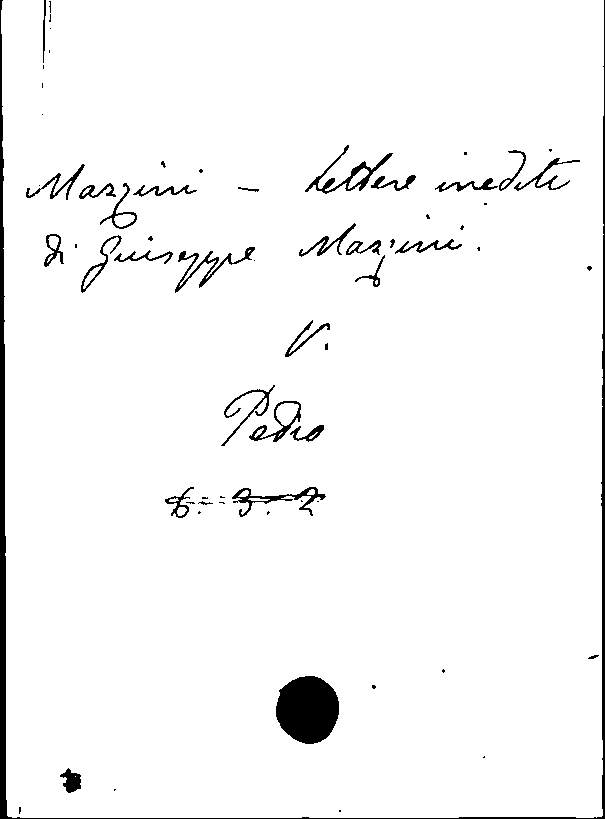 Mazzini - Lettere inedite
di Giuseppe Mazzini.
V.
Pedro
6. 3. 2